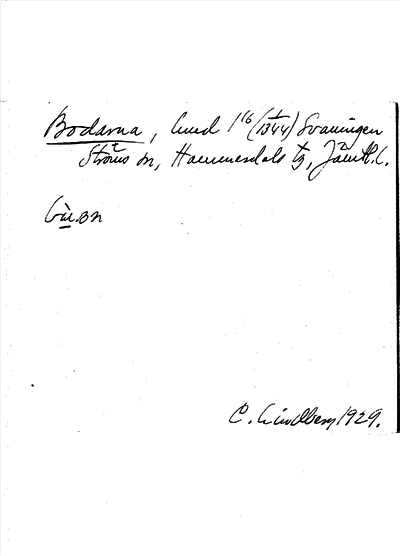 Bodarna, lund 1¹⁶ (1344) Svaningen
Ströms sn, Hammerdals tg, Jämtl. l.
C. Lindberg 1929.